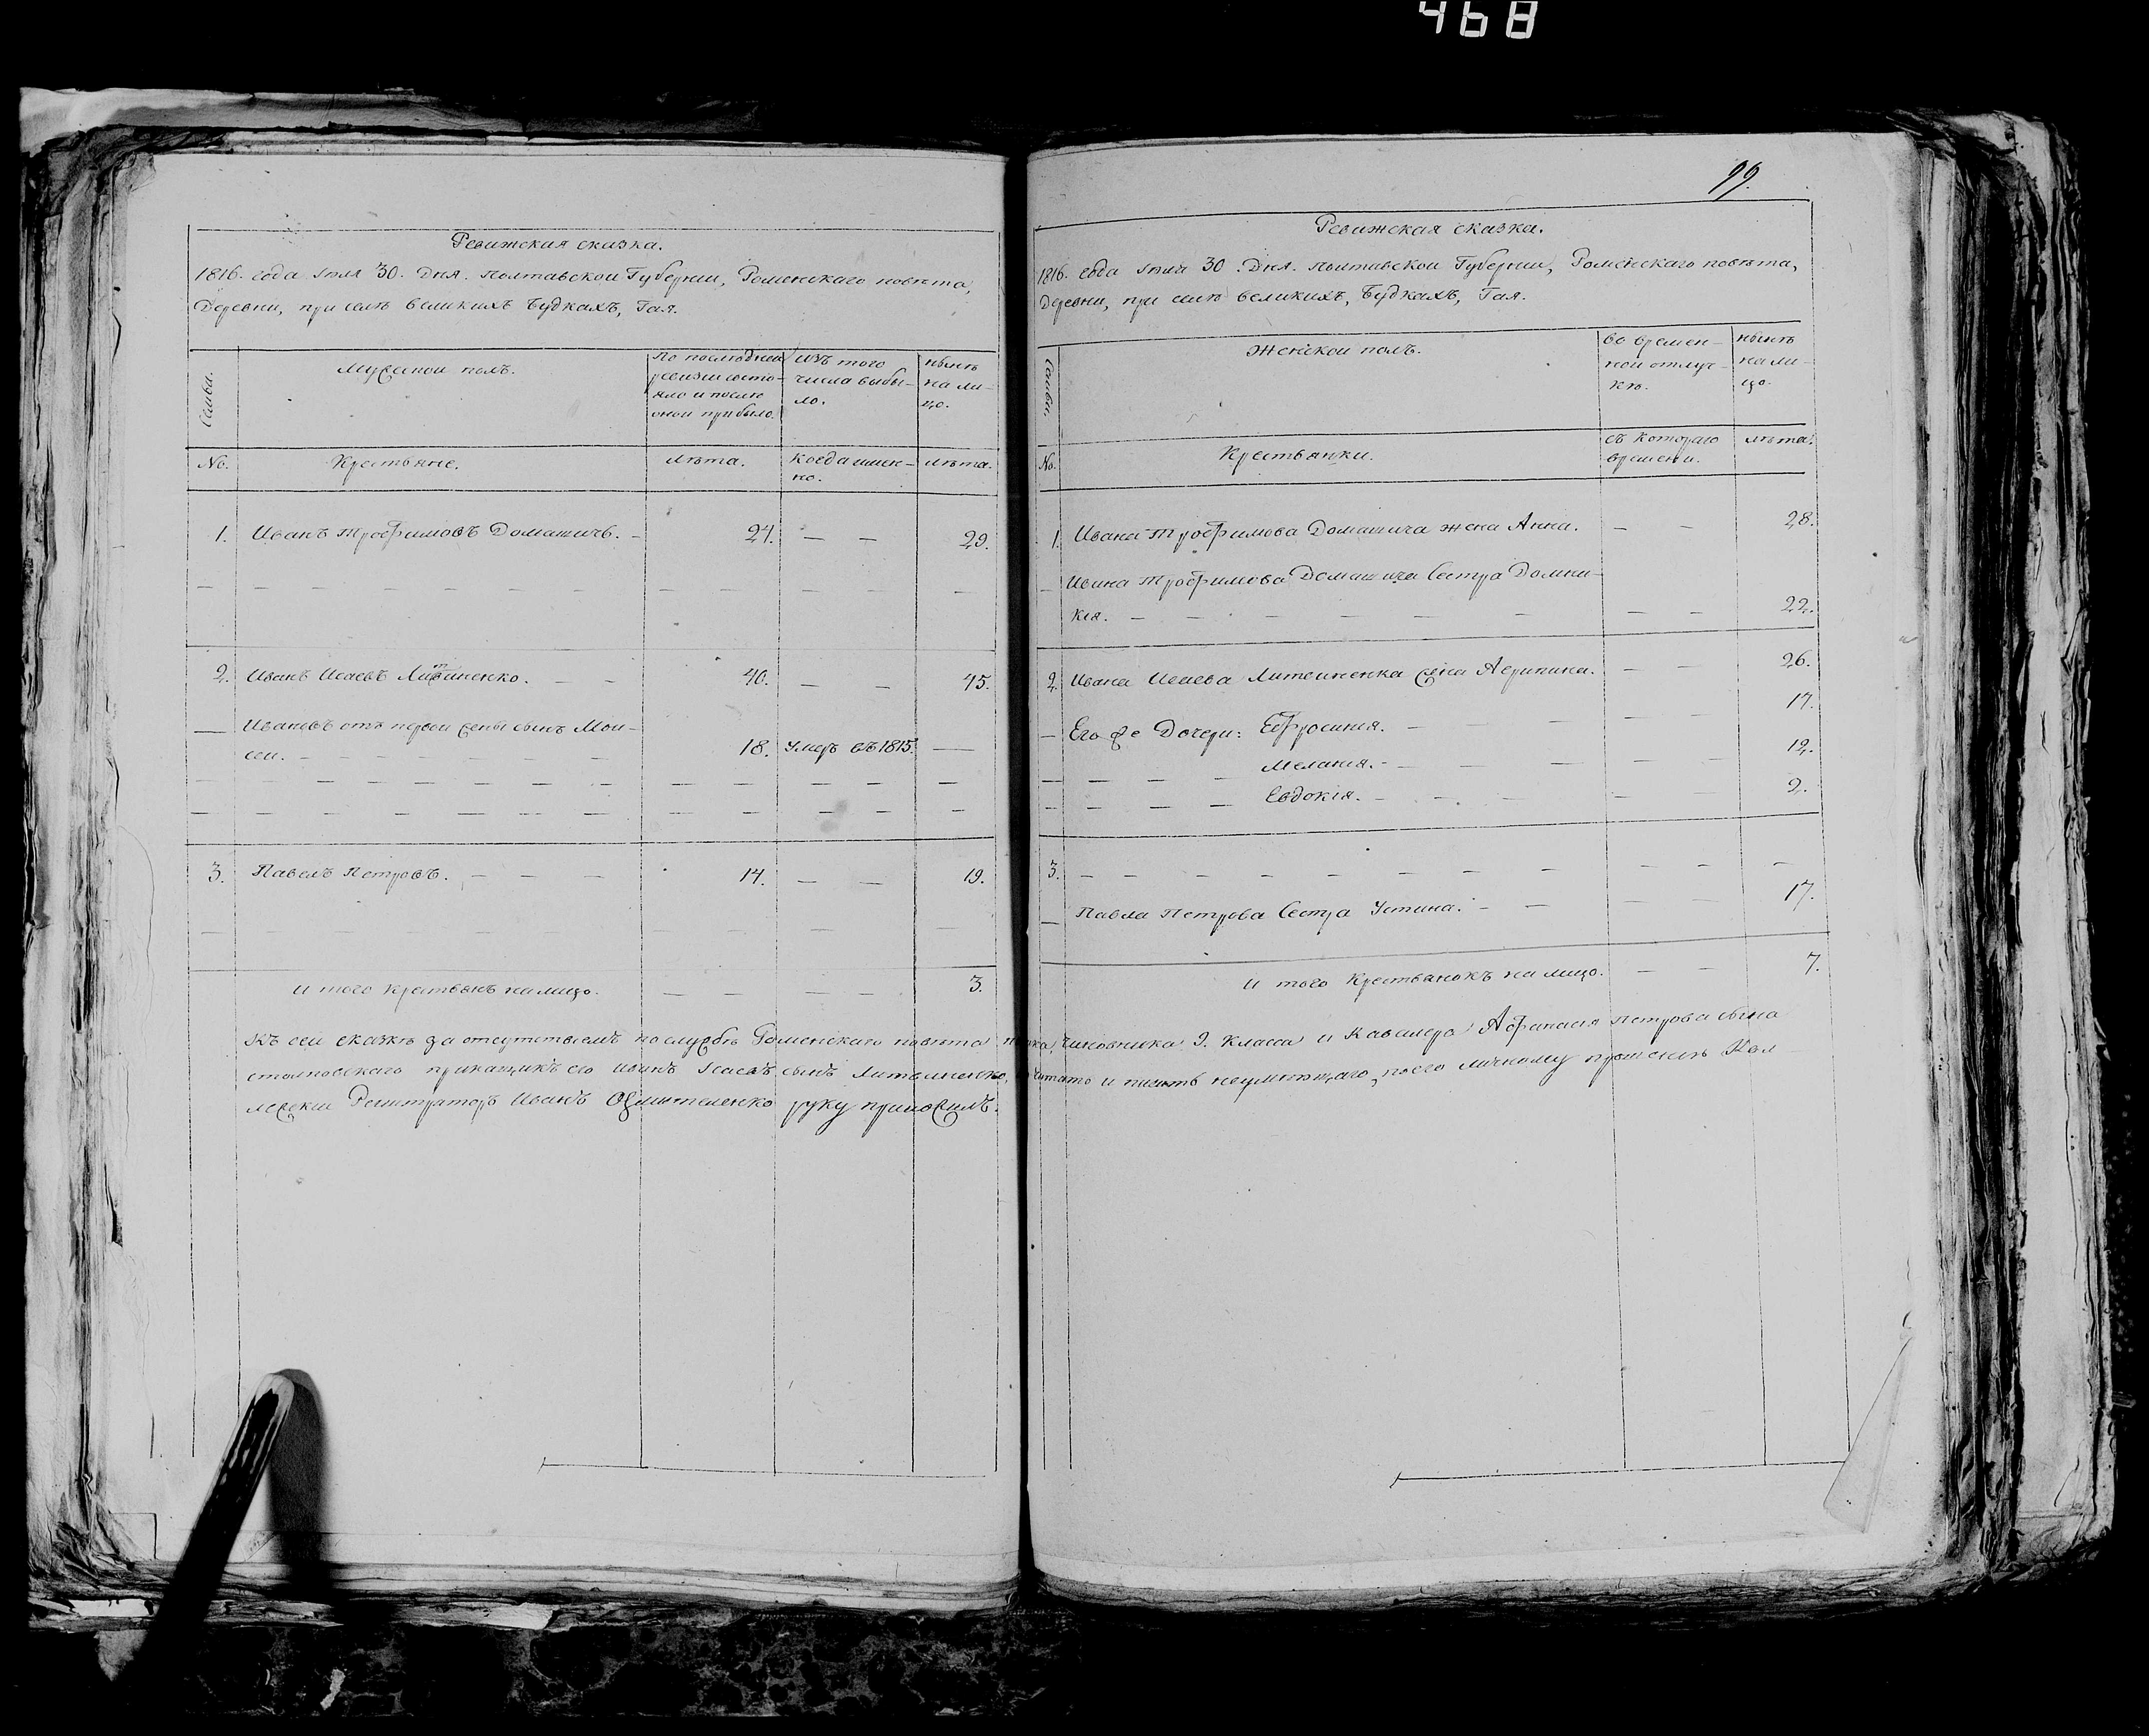 468
Ревижская сказка.
1816. года Іюля 30. Дня. Полтавской Губерніи, Роменскаго повѣта,
Деревни, при селѣ великихъ Будкахъ, Гая.
Семьи.
Мужеской полъ.
По последней
ревизіи состо-
яло и после
оной прибыло.
изъ того
числа выбы-
ло.
нынѣ
на ли-
цо.
No.
Крестьяне.
лѣта.
Когда имен-
но.
лѣта.
1. Иванъ Трофимовъ Домашичь. - 24. — — 29.
2. Иванъ Исаевъ Литвиненко. — — 40. — — 45.
— Ивановъ отъ первой жены сынъ Мои-
сей. — 18. Умеръ въ 1815. —
3. Павелъ Петровъ. — — — 14. — — 19.
и того крестьянъ налицо. — — — — 3.
99.
Ревижская сказка.
1816. года Іюля 30. Дня. Полтавской Губерніи, Роменскаго повѣта,
Деревни, при селѣ великихъ, Будкахъ, Гая.
Семьи.
Женской полъ.
во времен-
ной отлуч-
кѣ.
нынѣ
на ли-
цо.
No.
Крестьянки.
съ котораго
времени.
лѣта.
1. Ивана Трофимова Домашича жена Анна. — — 28.
— Ивана Трофимова Домашича Сестра Домни-
кія. — — — — — — — — 22.
2. Ивана Исаева Литвиненка жена Агрипина. — — 26.
— Его же Дочери: Евфросинія. — — — — 17.
Меланія. — — — — — 12.
Евдокія. — — — — — 2.
3. — — — — — — — — — — —
— Павла Петрова Сестра Устина. — — — — 17.
и того Крестьянокъ налицо. — — 7.
Къ сей сказкѣ за отсутствіемъ на службѣ Роменскаго повѣта чиновника 9. Класса и Кавалера Афанасія Петрова сына
прикащикъ его Иванъ Исаевъ сынъ Литвиненко, читать и писать неумѣющаго, по его личному прошенію Кол-
лежскій Регистраторъ Иванъ руку приложилъ.